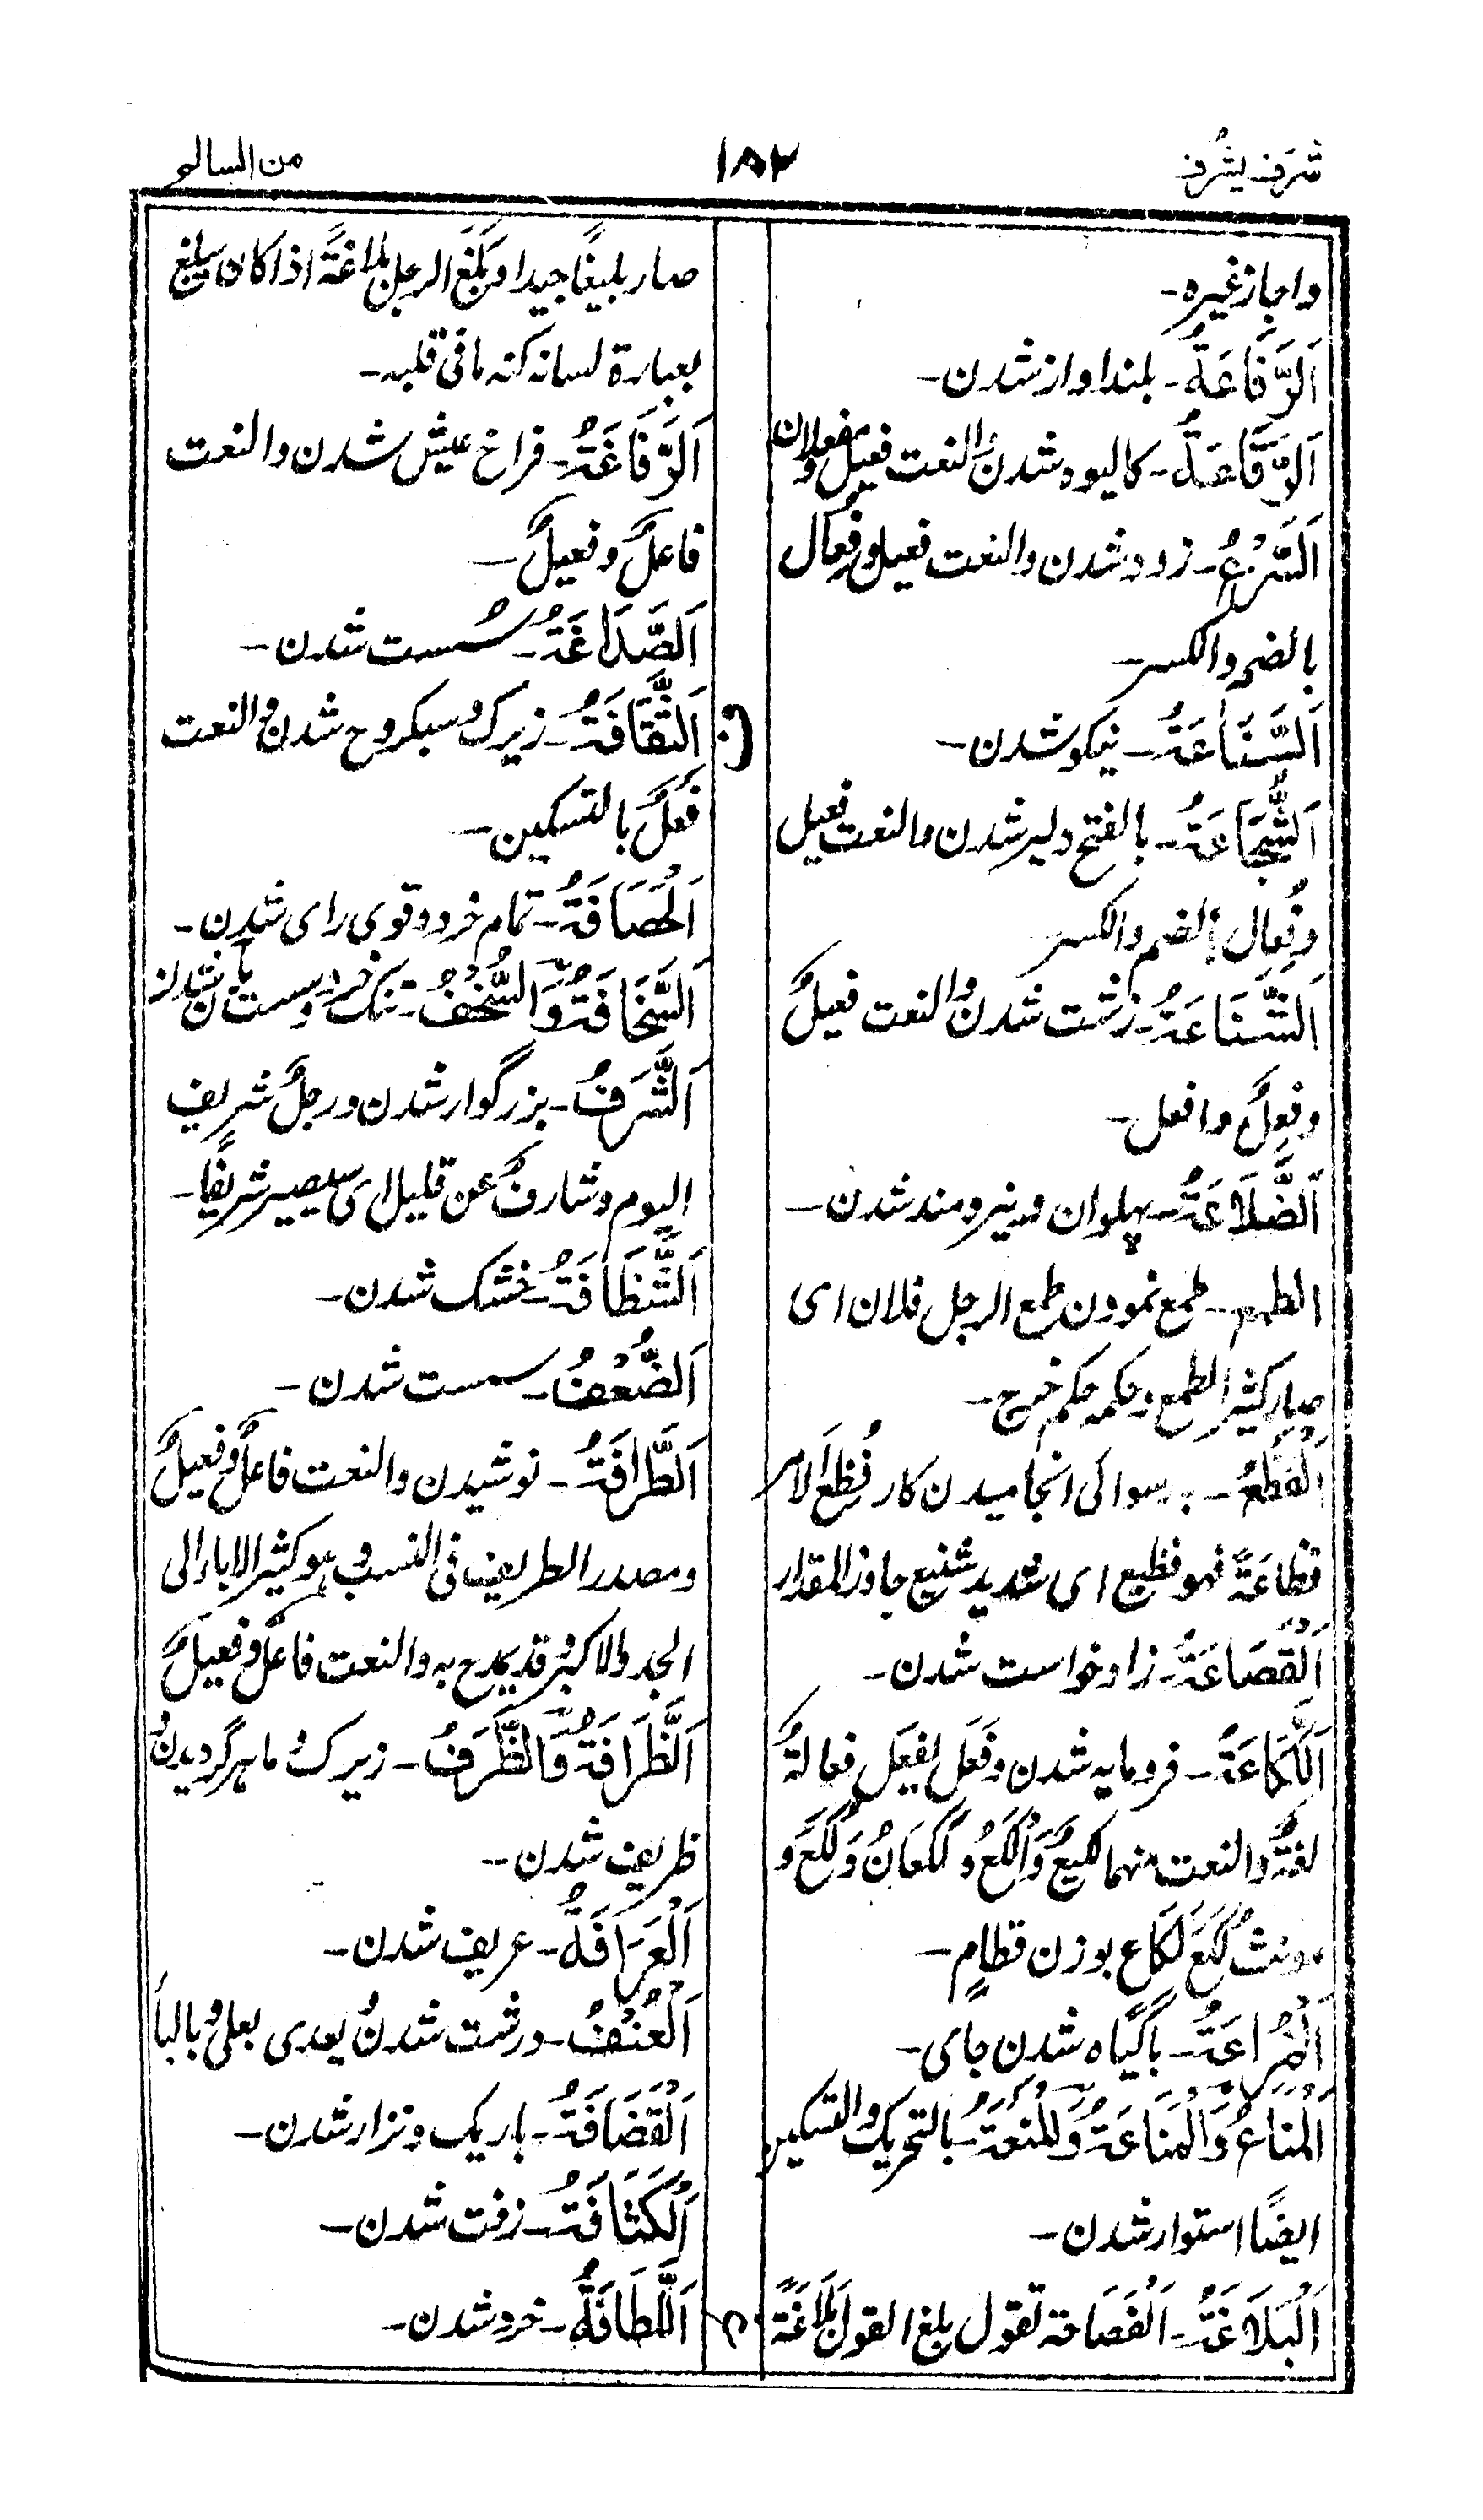 شرف یشرف
۱۸۲
من السالم
واجاز غیره۔
اَلرَّفَاعَةُ۔ بلند اواز شدن۔
اَلرَّقَاعَةُ۔ کالیوه شدن والنعت فعیل وفعلان
اَلسُّرْعُ۔ زود شدن والنعت فعیل وفعال
بالضم والکسر۔
اَلسَّنَاعَةُ۔ نیکو شدن۔
اَلشُّجَاعَةُ۔ بالفتح دلیر شدن والنعت فعیل
وفُعال بالضم والکسر
اَلشَّنَاعَةُ۔ زشت شدن والنعت فعیلٌ
وفعِلٌ وافعل۔
اَلضَّلَاعَةُ۔ پهلوان ونیرومند شدن۔
الطمع۔ طمع نمودن طمع الرجل فلان ای
صار کثیر الطمع حکمه حکم خرج۔
اَلْفَظْعُ۔ برسوائی انجامیدن کار فُظِعَ الامر
فظاعةً فهو فظیع ای شدید شنیع جاوز المقدار
اَلْقَصَاعَةُ۔ زاد خواست شدن۔
اَللَّکَاعَةُ۔ فرومایه شدن وفَعَل یفعَل فعالةً
لغةٌ والنعت منهما لکیعٌ وَاَلْکَعُ و لکعانُ وَلُکَعَ و
مونث لُکَعَ لَکَاعِ بوزن قطامِ۔
اَلْمَرَاعَةُ۔ باگیاه شدن جای۔
اَلْمَنَاعُ وَالْمَنَاعَةُ وَالْمَنْعَةُ۔ بالتحریک والتسکین
ایضًا استوار شدن۔
اَلْبَلَاغَةُ۔ اَلْفَصَاحة تقول بلغ القول بَلَاغَةً
غ
صار بلیغًا جیدا وبَلُغَ الرجل بلاغةً اذا کان یبلغ
بعبارة لسانه کنه مافی قلبه۔
اَلرَّفَاغَةُ۔ فراخ عیش شدن والنعت
فاعلٌ وفعیلٌ۔
اَلصَّدَاغَةُ۔ سُست شدن۔
ف
اَلثَّقَافَةُ۔ زیرک وسبکروح شدن والنعت
فَعْلٌ بالتسکین۔
اَلْحَصَافَةُ۔ تمام خرد وقوی رای شدن۔
اَلسَّخَافَةُ وَالسُّخْفُ۔ تنک خرد وسست بافت شدن
اَلشَّرَفُ۔ بزرگوار شدن ورجلٌ شریف
الیوم وشارفٌ عن قلیل ای سیصیر شریفًا۔
اَلشَّظَافَةُ۔ خشک شدن۔
اَلضُّعْفُ۔ سست شدن۔
اَلطَّرَافَةُ۔ نوشیدن والنعت فاعلٌ وفعیلٌ
ومصدر الطریف فی النسب وهو کثیر الاباء الی
الجد والاکبر وقد یمدح به والنعت فاعلٌ وفعیلٌ
اَلظَّرَافَةُ وَالظَّرَفُ۔ زیرک و ماهر گردیدن و
ظریف شدن۔
اَلْعَرَافَةُ۔ عریف شدن۔
اَلْعُنْفُ۔ درشت شدن ویعدی بعلی وبالباء
اَلْقَضَافَةُ۔ باریک ونزار شدن۔
اَلْکَثَافَةُ۔ زفت شدن۔
اَللَّطَافَةُ۔ خرد شدن۔